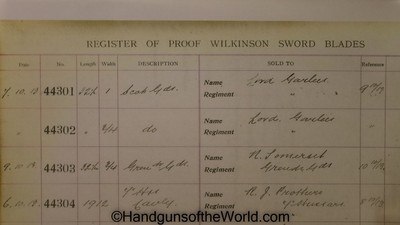 REGISTER OF PROOF WILKINSON SWORD BLADES
Date No. Length Width DESCRIPTION SOLD TO Reference
7.10.12 44301 32½ 1 Scots Gds. Name Lord Garlies
Regiment " "
" 44302 " 3/4 do Name Lord Garlies "
Regiment "
9.10.12 44303 32½ 3/4 Gren. Gds. Name N. Somerset
Regiment Grenadr Gds.
6.10.12 44304 1912 7 Hrs Name R. J. Brothers
Cavly Regiment 7 Hussars
©HandgunsoftheWorld.com